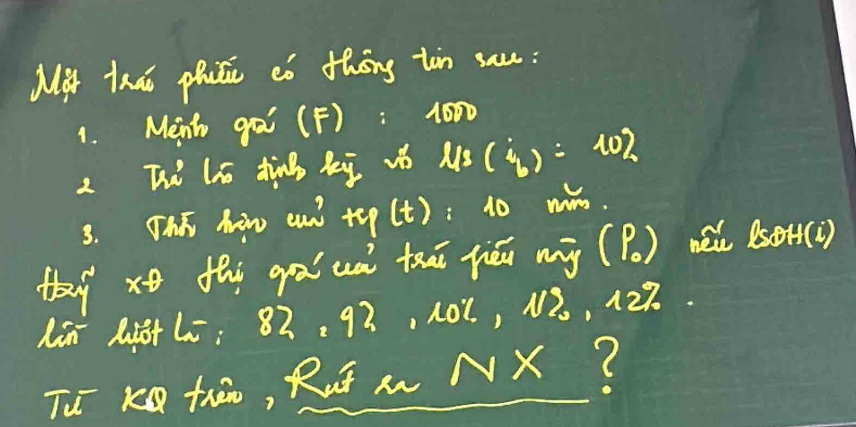 Một trái phiếu có thông tin sau:
1. Mệnh giá (F): 1000
2 Trả lãi định kỳ với l/s (i_b) = 10%
3. Thời hạn của tcp (t): 10 năm.
Hãy xđ thị giá của trái phiếu này (P_o) nếu lsđH(i)
lần lượt là: 8%, 9%, 10%, 11%, 12%.
Từ KQ trên, Rút ra NX?